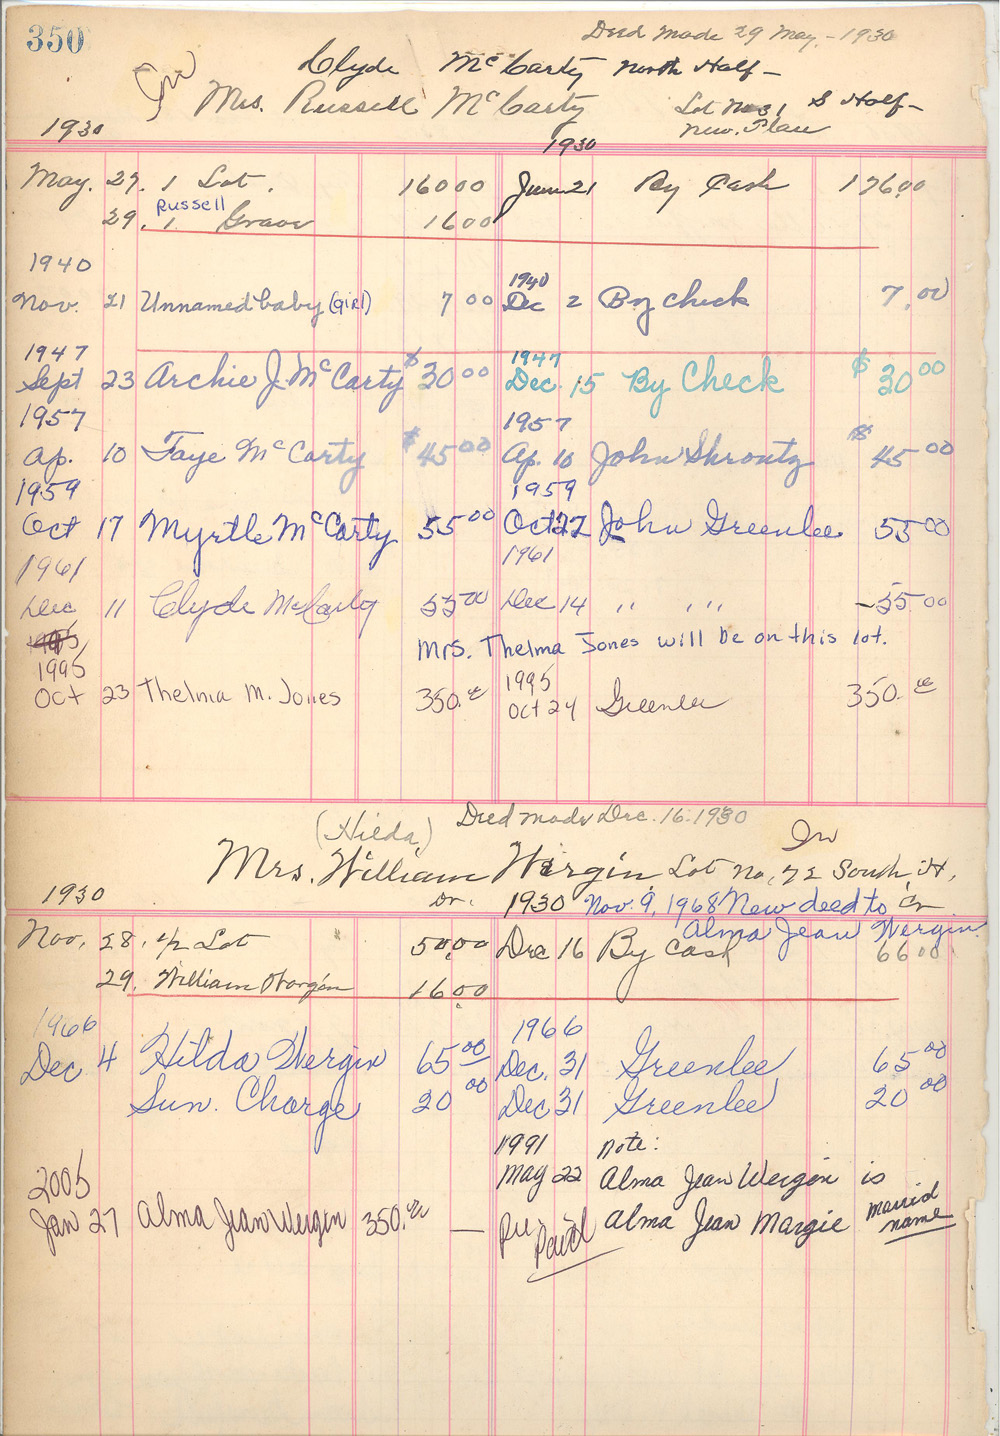 350
Deed Made 29 May - 1930
Clyde McCarty North Half -
Mrs. Russell McCarty Lot No 31 S Half -
1930 New Place
1930
May. 27. 1 Lot. 160 00 June 21 By Cash 176.00
Russell
29. 1 Grave 16 00
1940 1940
Nov. 21 Unnamed baby (Girl) 7 00 Dec 2 By check 7.00
1947 1947
Sept 23 Archie J. McCarty $30 00 Dec. 15 By Check $30 00
1957 1957
Ap. 10 Faye McCarty $45 00 Ap. 10 John Shrontz $45 00
1959 1959
Oct 17 Myrtle McCarty 55 00 Oct 27 John Greenlee 55 00
1961 1961
Dec 11 Clyde McCarty 55 00 Dec 14 " " " -55 00
Mrs. Thelma Jones will be on this lot.
1995 1995
Oct 23 Thelma M. Jones 350. Oct 24 Greenlee 350.
(Hilda,) Deed made Dec. 16. 1930
Mrs. William Wergin, Lot No, 72 South, H,
1930 Dr. 1930 Nov. 9, 1968 New deed to Cr
Alma Jean Wergin.
Nov. 28. 1/2 Lot 50.00 Dec 16 By Cash 66 00
29. William Worgin 16.00
1966 1966
Dec. 4 Hilda Wergin 65 00 Dec. 31 Greenlee 65 00
Sun. Charge 20 00 Dec 31 Greenlee 20 00
1991 Note:
May 22 Alma Jean Wergin is
2005
Jan 27 Alma Jean Wergin 350. — Pre Paid Alma Jean Margie married name